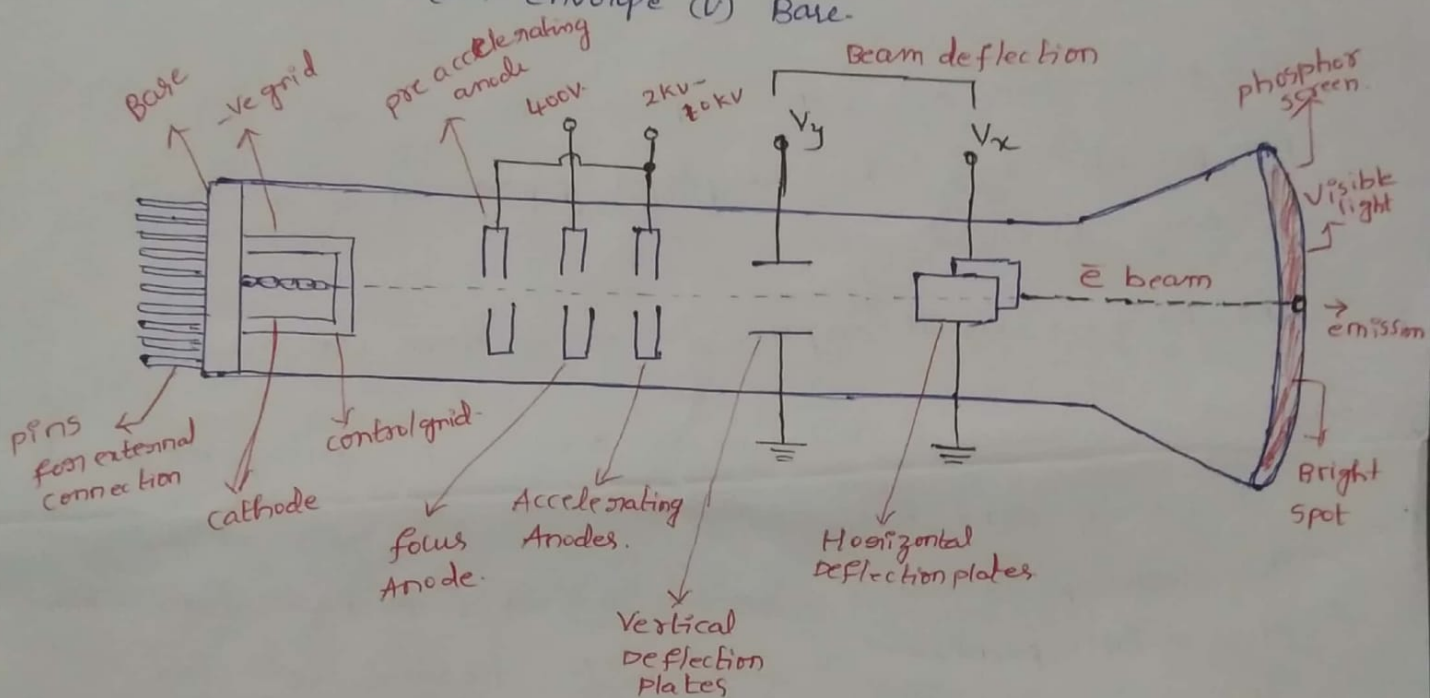 envelope (v) Base.
Base
-ve grid
pre accelerating
anode
400V.
2KV-
10KV
Beam deflection
Vy
Vx
phosphor
screen.
Visible
light
ē beam
emisson
Bright
Spot
pins
for external
connection
cathode
control grid.
focus
Anode.
Accelerating
Anodes.
Vertical
Deflection
Plates
Horizontal
Deflection plates